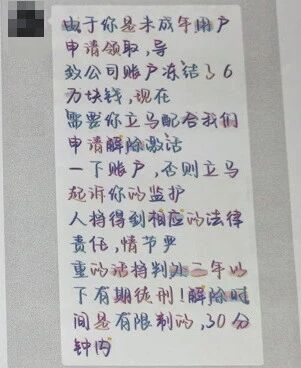 由于你是未成年用户
申请领取,导
致公司账户冻结了6
万块钱,现在
需要你立马配合我们
申请解除激活
一下账户,否则立马
起诉你的监护
人将得到相应的法律
责任,情节严
重的话将判处三年以
下有期徒刑!解除时
间是有限制的,30分
钟内